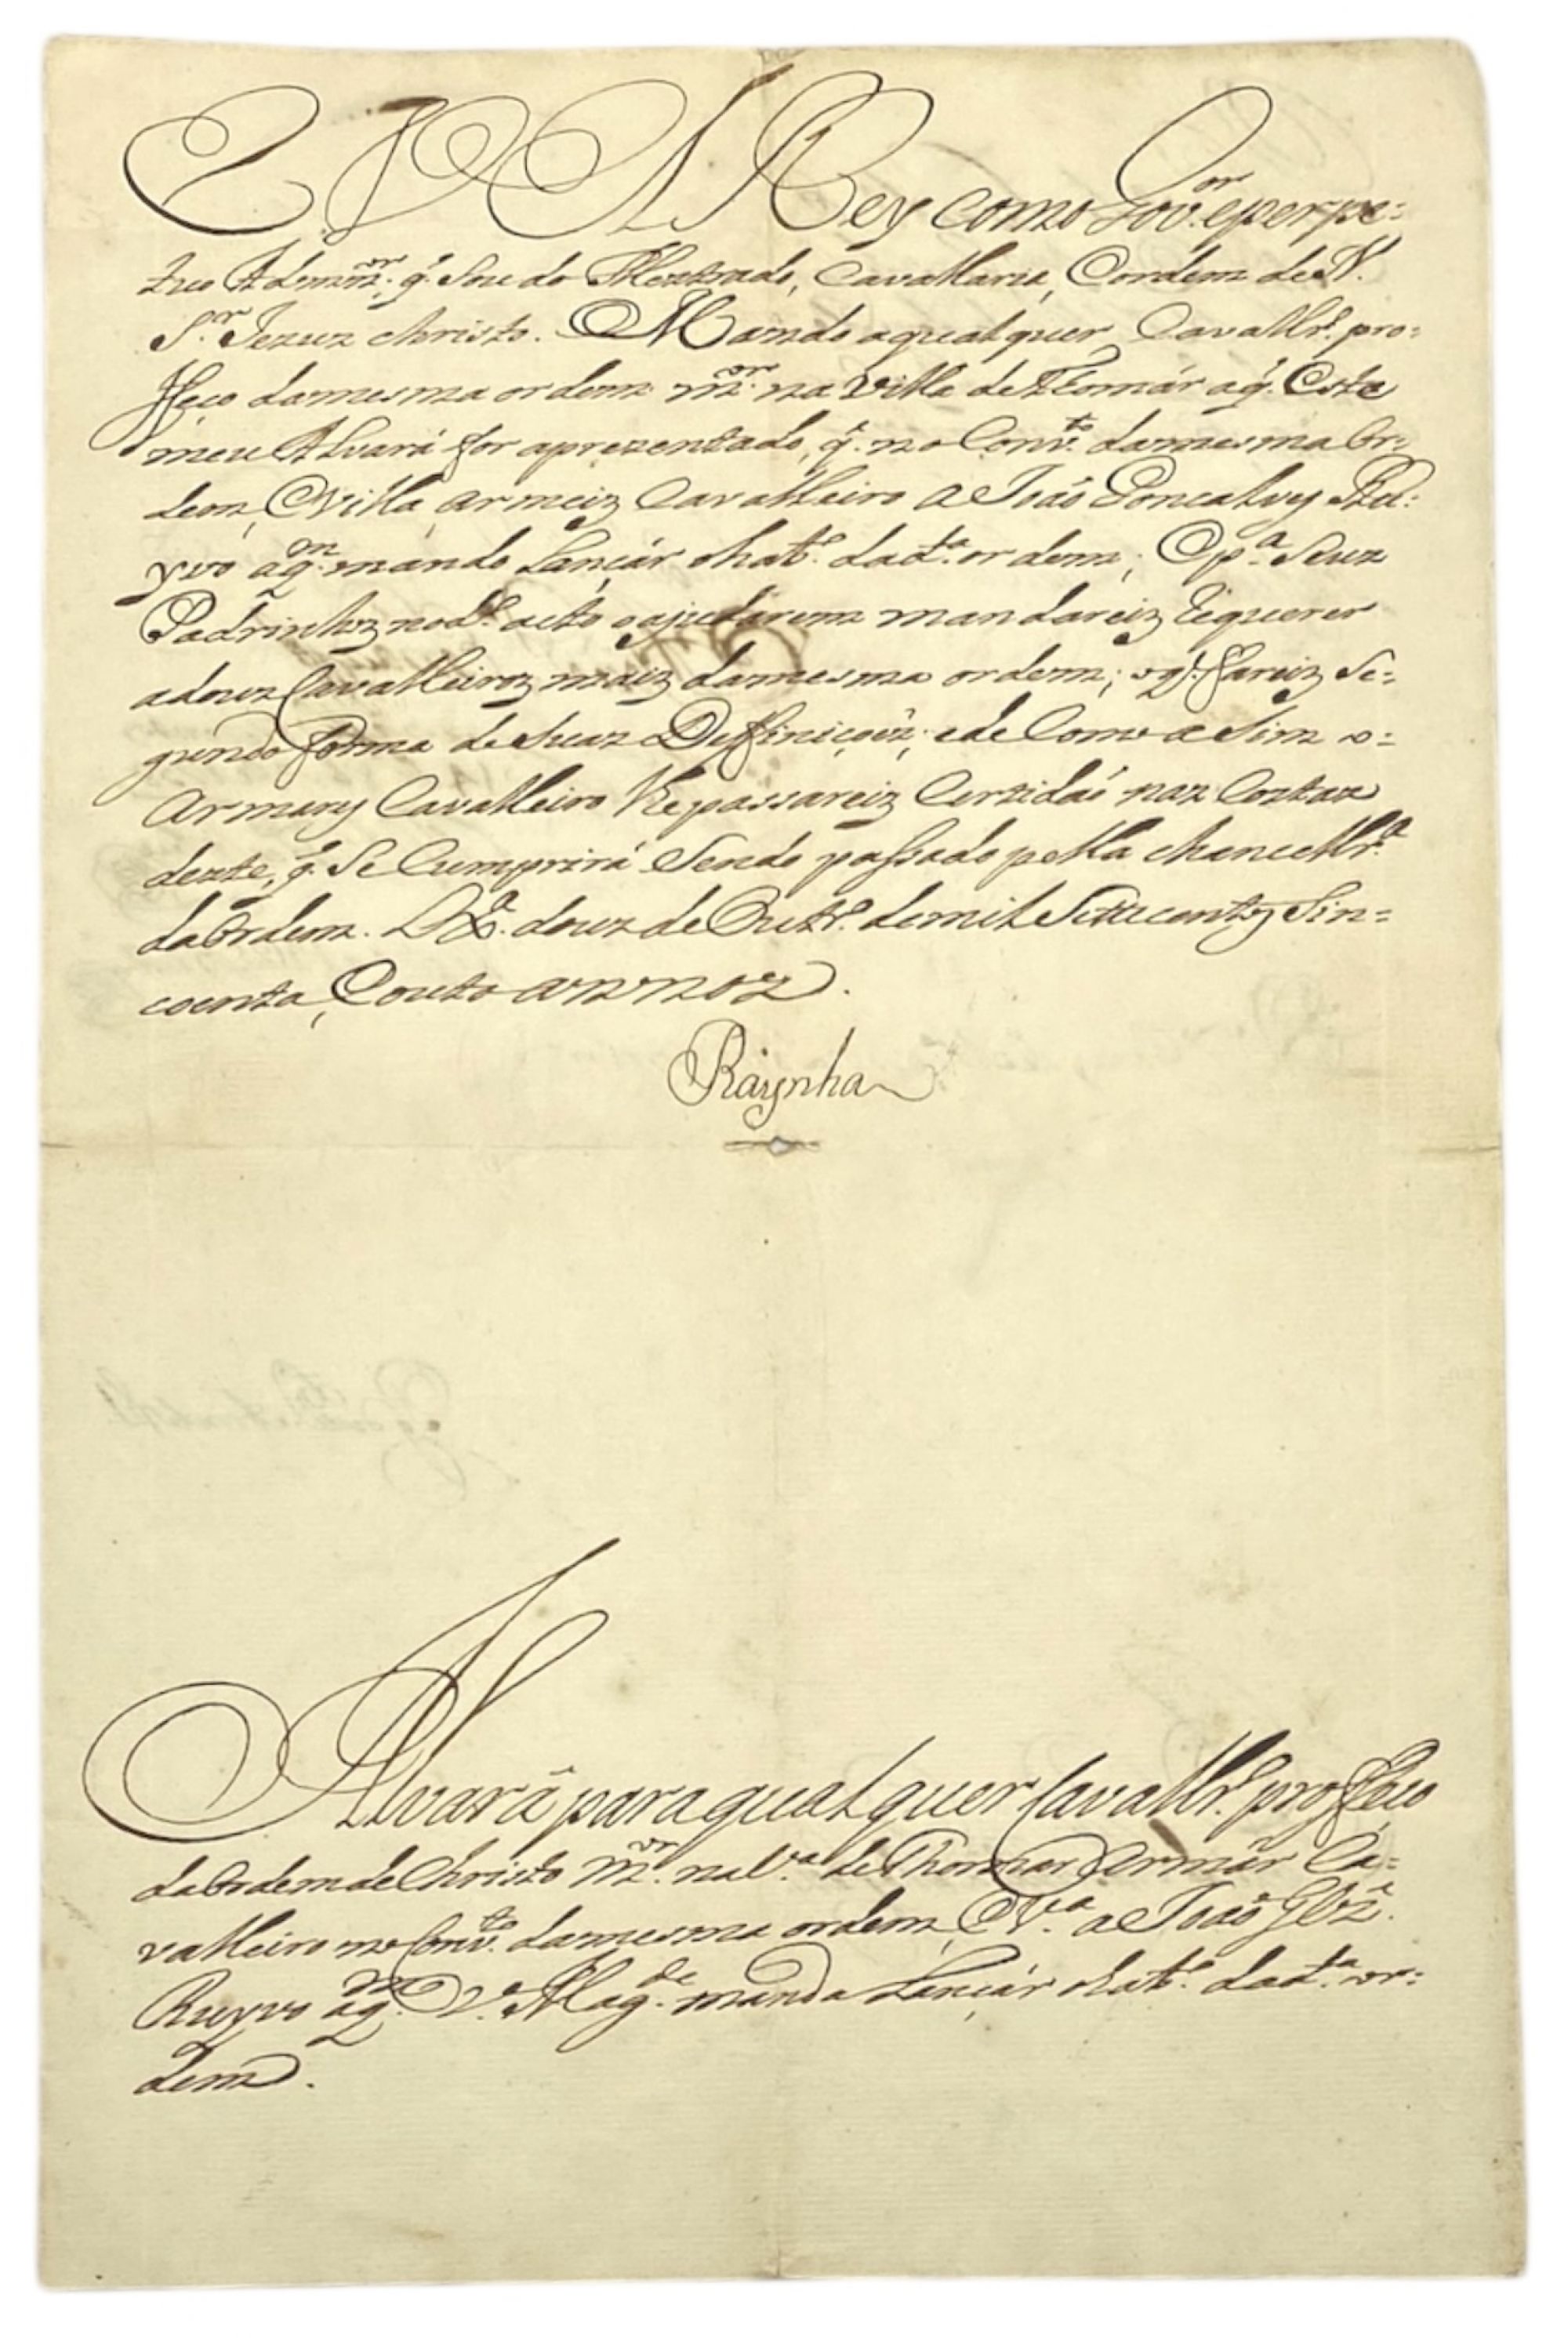 EU ELRey como Gov.or e perpe=
tuo Adminn.or q̃ Sou do Mestrado, Cavallaria, e ordem de N.
S.r Jezuz christo. Mando a qualquer Cavallr.o pro=
feço da mesma ordem m.or na villa de Thomár a q̃ Este
meu Alvará for aprezentado, q̃ no Conv.to da mesma Or=
dem, e villa, armeiz Cavalleiro a João Goncalvez Ru=
yvo a q.m mando Lançár o hab.o da d.a ordem; E p.a Seuz
Padrinhoz no d.o acto o ajudarem mandareiz requerer
a douz Cavalleiroz maiz da mesma ordem; o q̃ fareiz Se=
gundo forma de suaz Deffiniçoẽz; e de como a Sim o=
armarez Cavalleiro lhe passareiz Certidaõ naz Costaz
deste, q̃ Se cumprirá Sendo passado pella chancellr.a
da Ordem. Lx.a douz de Outr.o de mil Settecentoz Sin=
coenta, e outo annoz.
Raynha
Alvará para qualquer Cavallr.o proffeço
da Ordem de Christo m.or na V.a de Thomar armár Ca=
valleiro no Conv.to da mesma ordem, e V.a a João Glz̃
Ruyvo a q.m V. Mag.de manda Lançár o hab.o da d.a or=
dem.